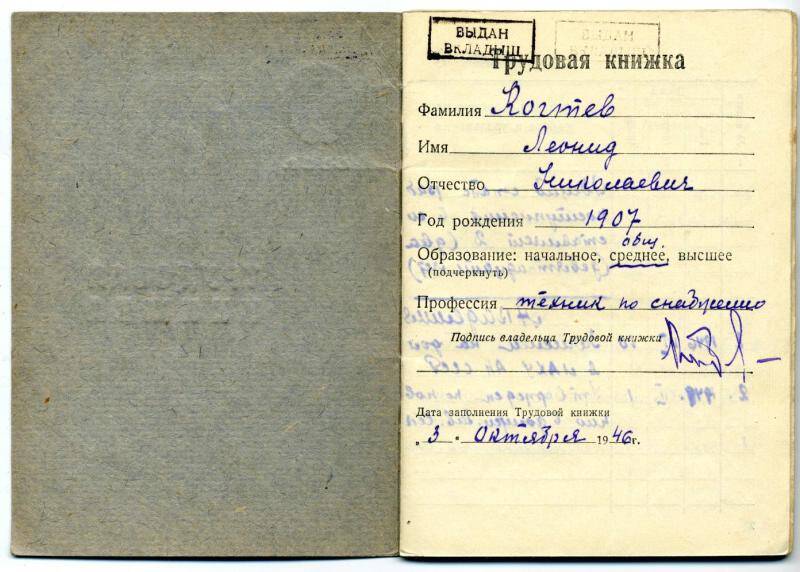 ВЫДАН
ВКЛАДЫШ
ВЫДАН
ВКЛАДЫШ
Трудовая книжка
Фамилия Когтев
Имя Леонид
Отчество Николаевич
Год рождения 1907
общ.
Образование: начальное, среднее, высшее
(подчеркнуть)
Профессия техник по снабжению
Подпись владельца Трудовой книжки
Дата заполнения Трудовой книжки
„3" Октября 1946г.